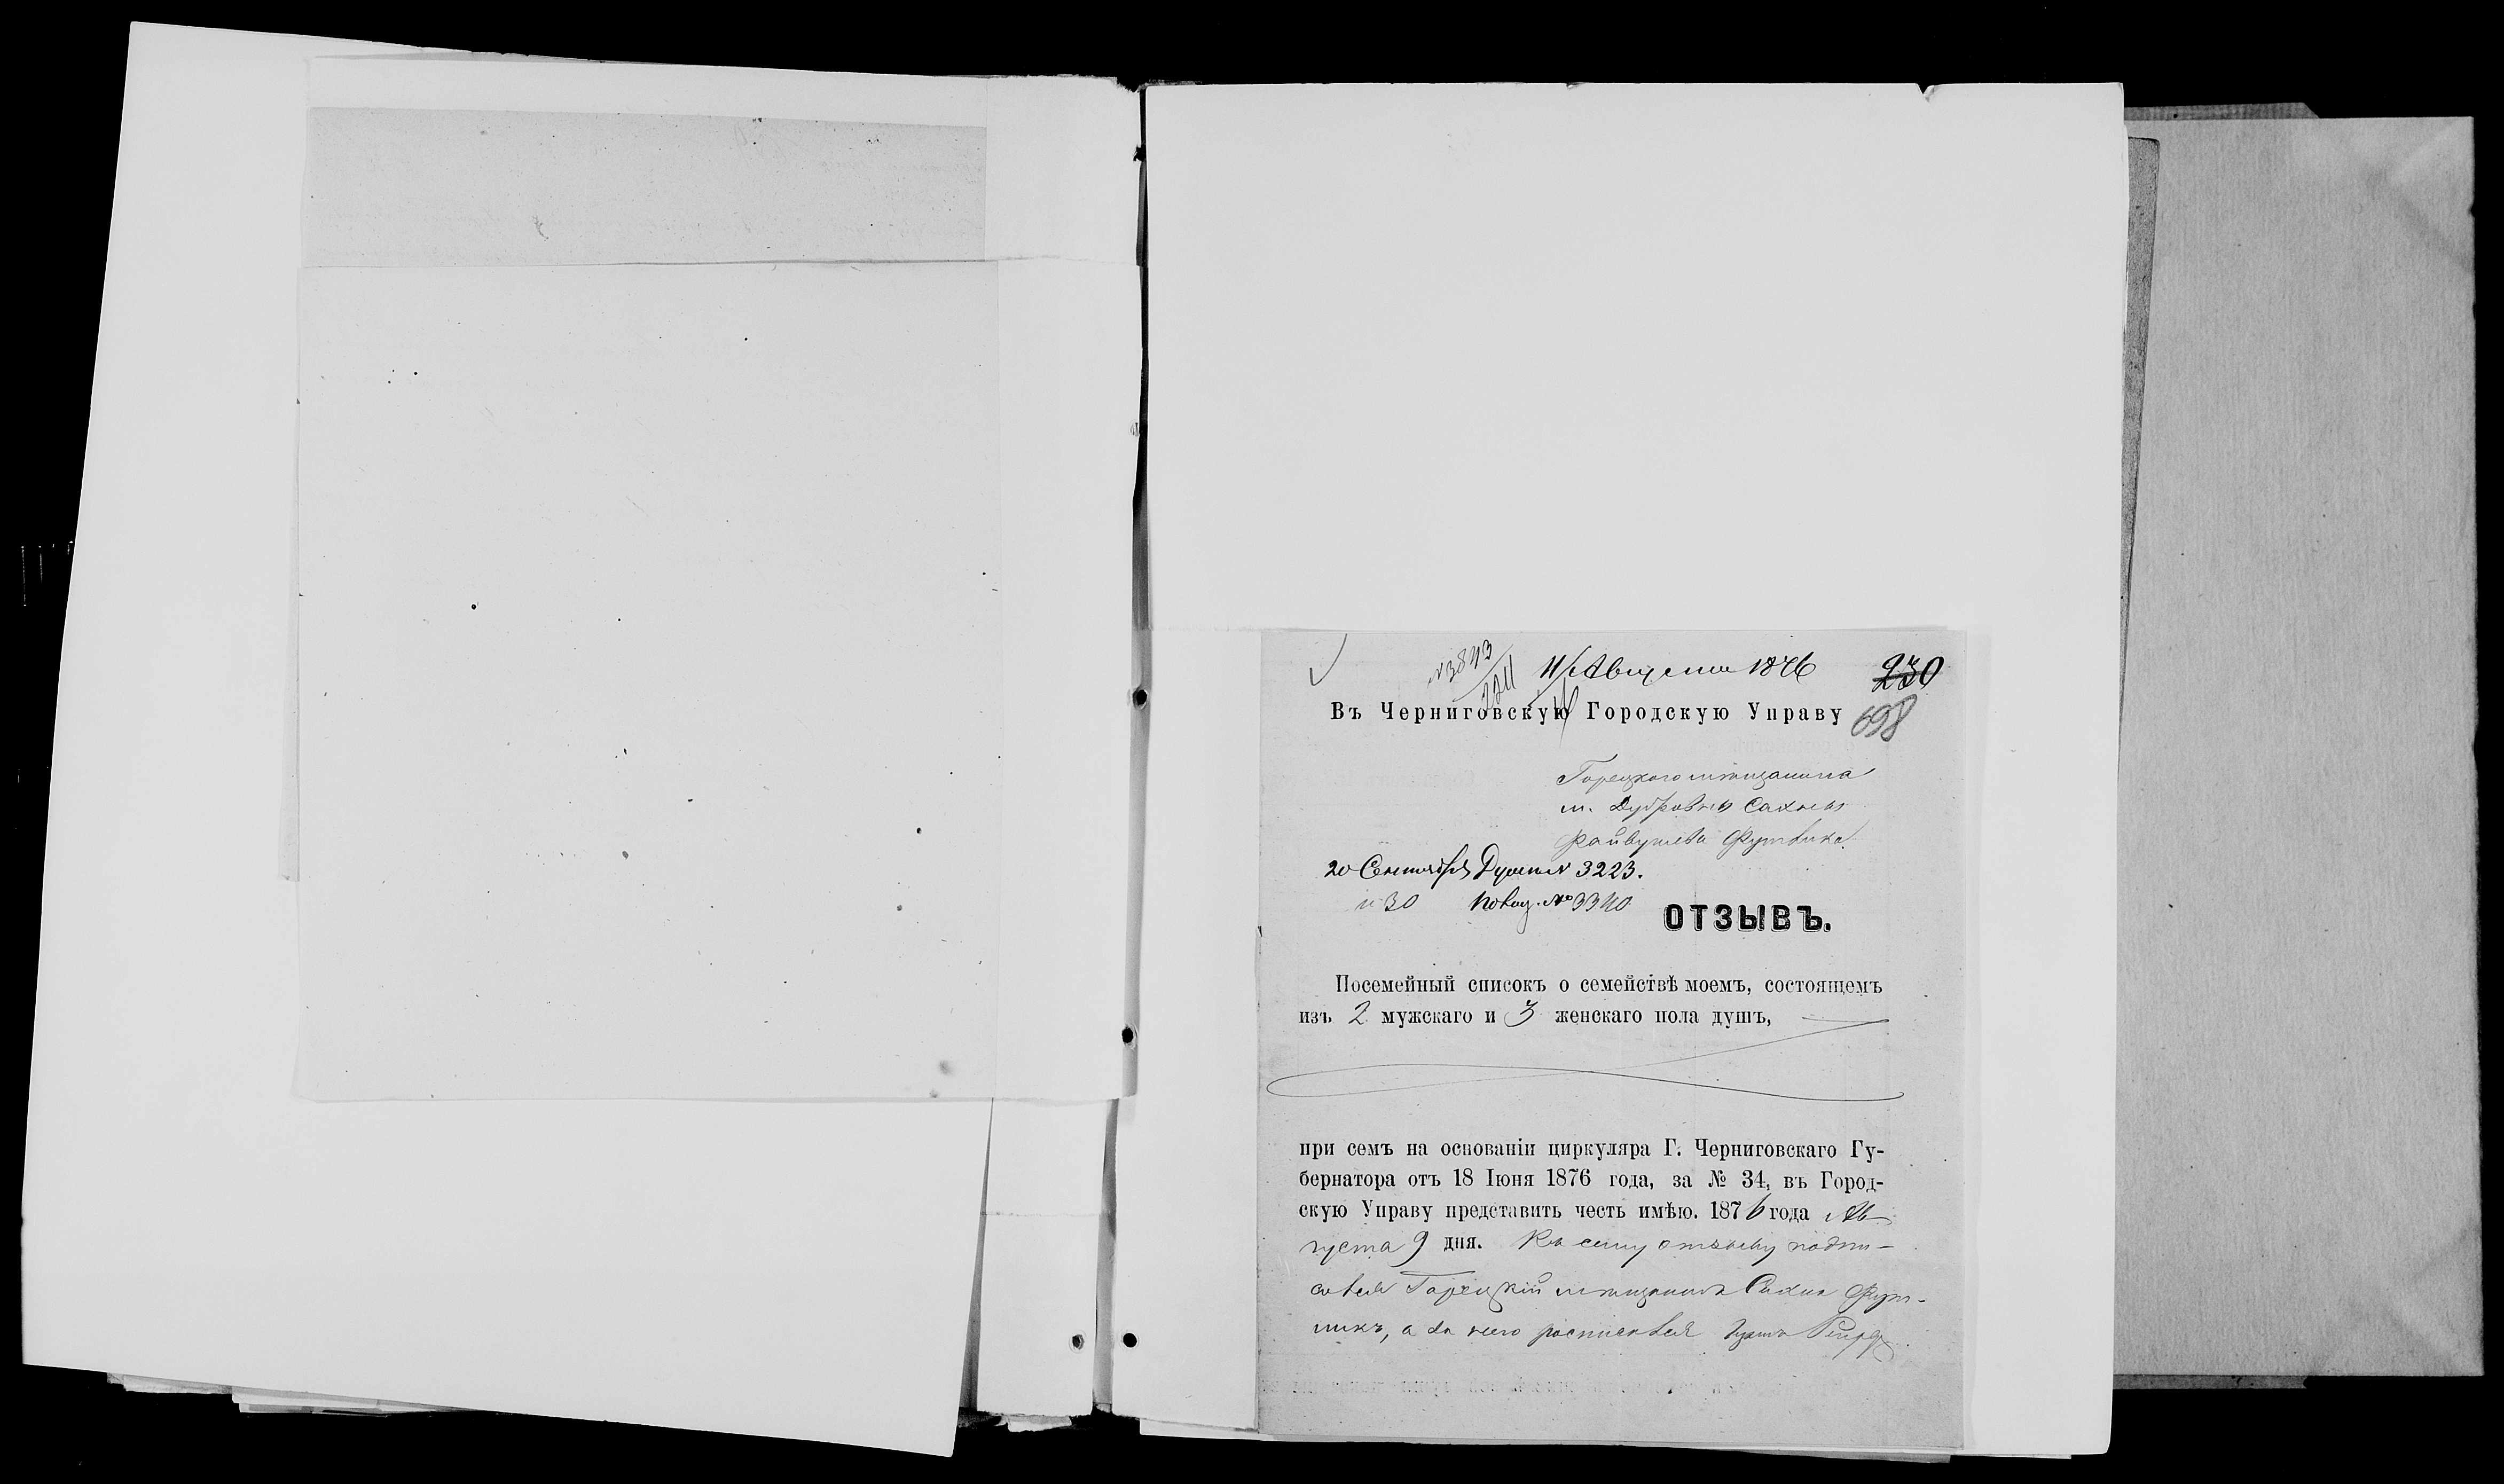 № 3843
224
11 Августа 1876
230
698
Въ Черниговскую Городскую Управу
Горецкого мѣщанина
м. Дубровны Сахны
Файвушева Футника
20 Сентября № 3223.
и 30 Повѣд. № 3340
ОТЗЫВЪ.
Посемейный списокъ о семействѣ моемъ, состоящемъ
изъ 2 мужскаго и 3 женскаго пола душъ,
при семъ на основаніи циркуляра Г. Черниговскаго Гу-
бернатора отъ 18 Іюня 1876 года, за № 34, въ Город-
скую Управу представить честь имѣю. 1876 года Ав
густа 9 дня. Къ сему отзыву подпи-
сался Горецкій мѣщанинъ Сахна Фут-
никъ, а за него росписался